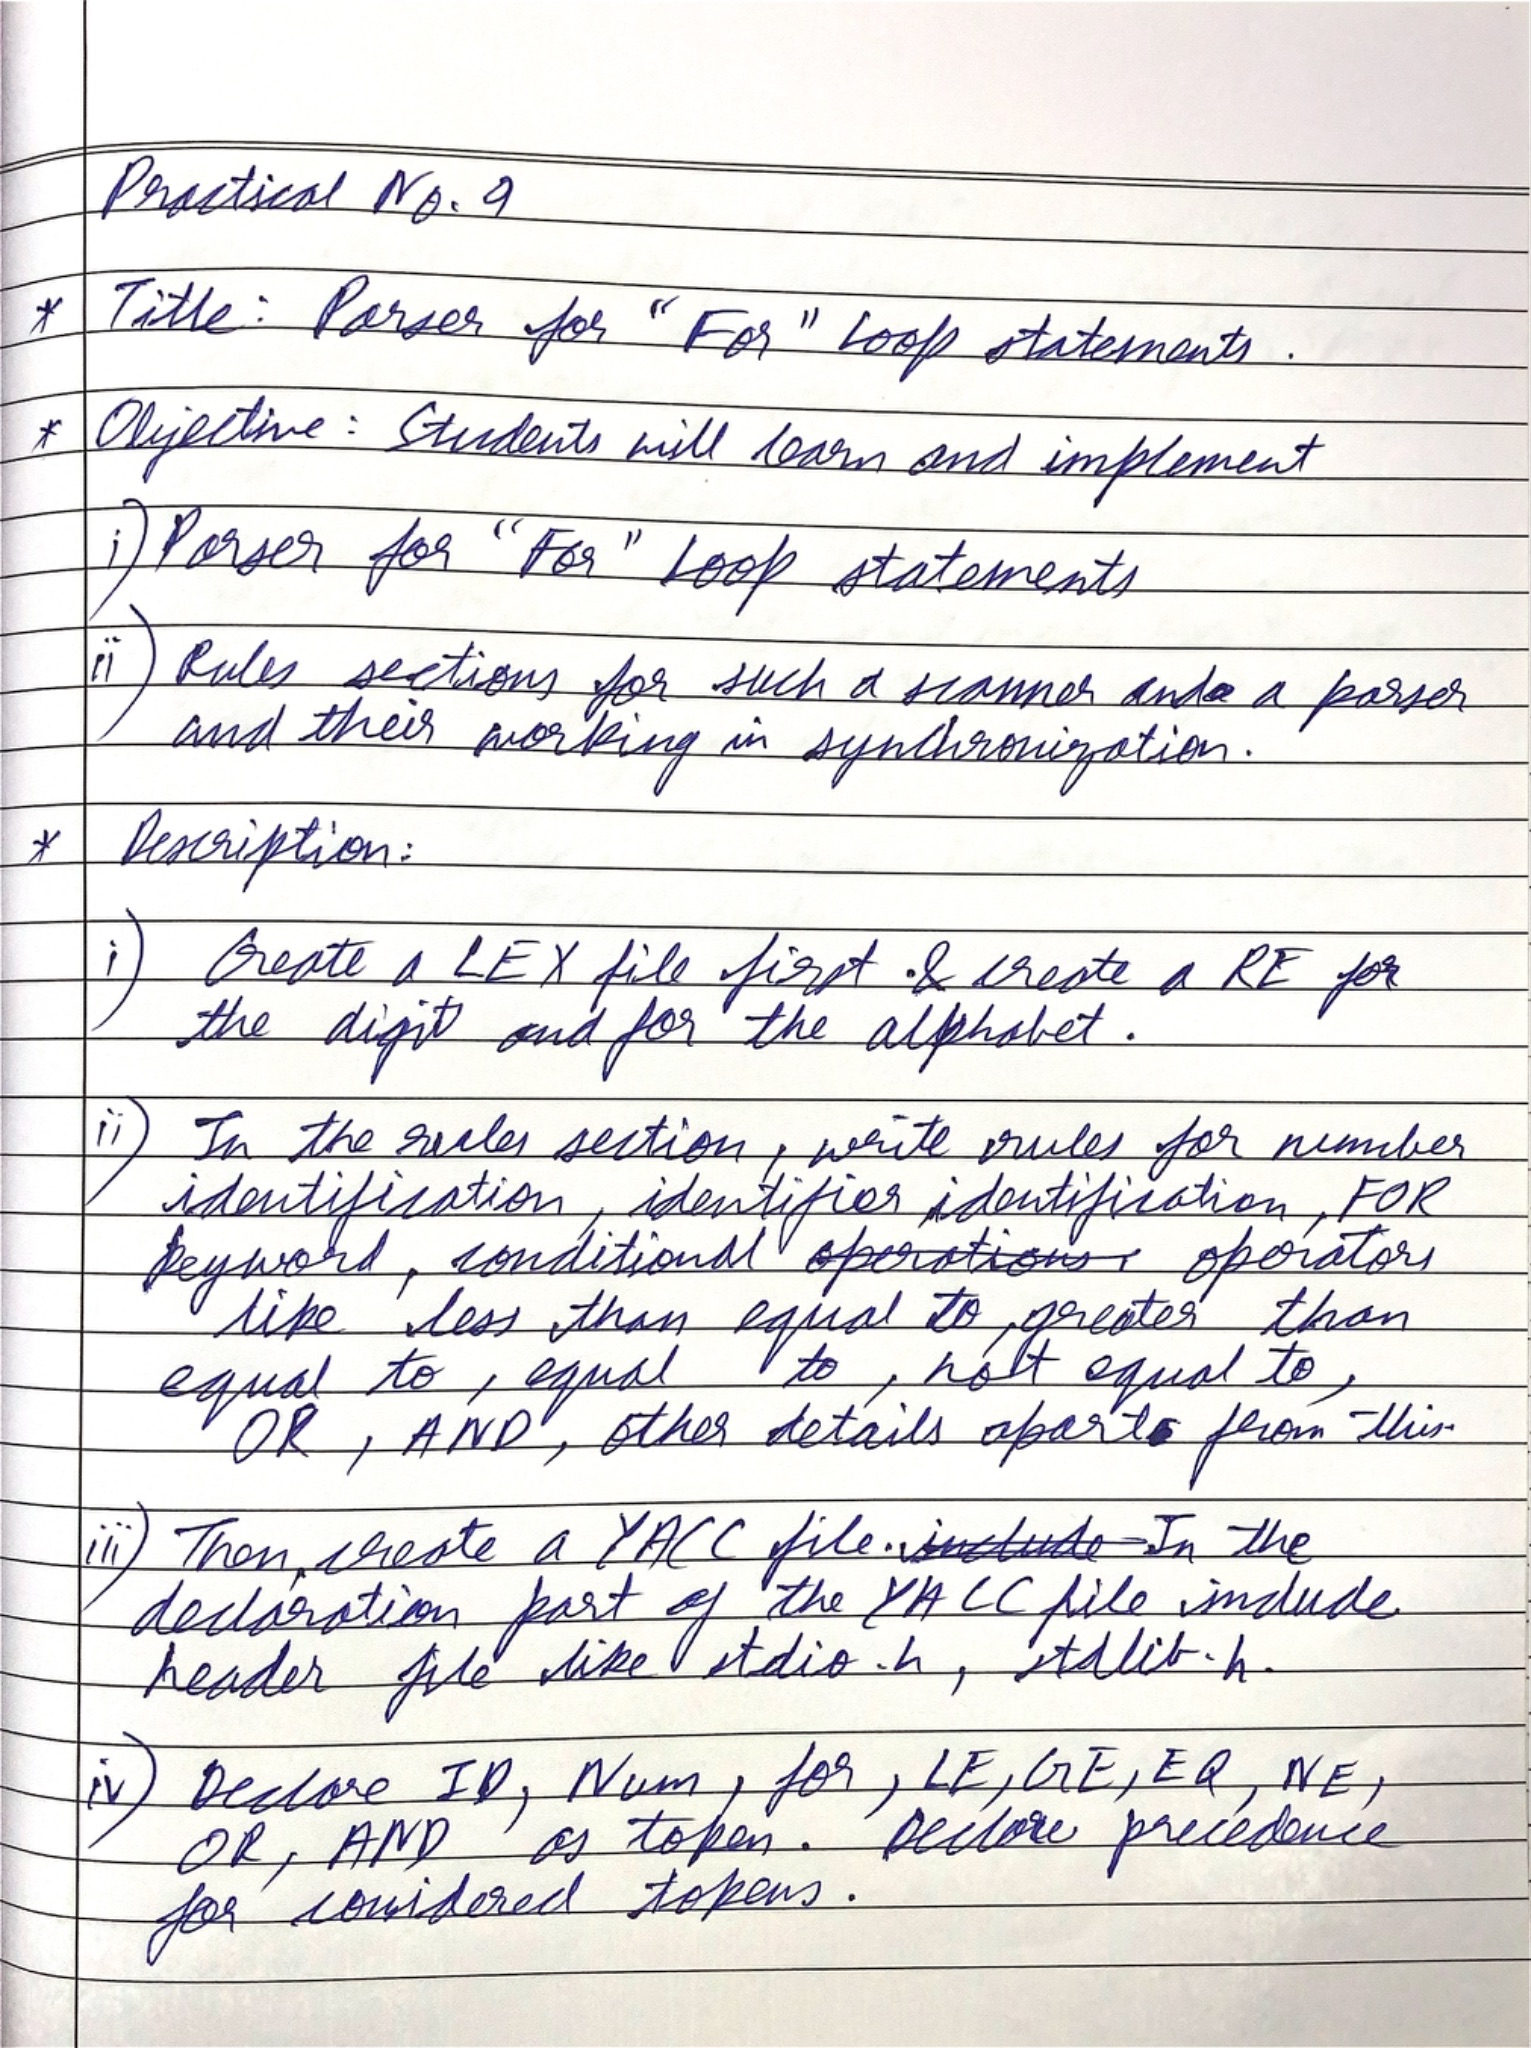 Practical No. 9
* Title: Parser for "For" Loop statements.
* Objective: Students will learn and implement
i) Parser for "For" Loop statements
ii) Rules sections for such a scanner and a parser
and their working in synchronization.
* Description:
i) Create a LEX file first & create a RE for
the digit and for the alphabet.
ii) In the rules section, write rules for number
identification, identifier identification, FOR
keyword, conditional operations, operators
like less than equal to, greater than
equal to, equal to, not equal to,
OR, AND, other details apart from this.
iii) Then, create a YACC file. include In the
declaration part of the YACC file include
header file like stdio.h, stdlib.h.
iv) Declare ID, Num, for, LE, GE, EQ, NE,
OR, AND as token. Declare precedence
for considered tokens.